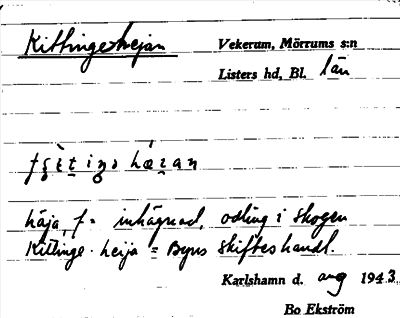 Kittingehejan
Vekerum, Mörrums s:n
Listers hd, Bl. län
häja, f. = inhägnad, odling i skogen
Kittinge-heija = Byns skifteshandl.
Karlshamn d. aug 1943
Bo Ekström